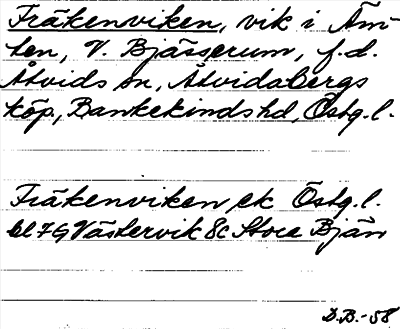 Fräkenviken, vik i Äm-
ten, V. Bjässerum, f.d.
Åtvids sn, Åtvidabergs
köp, Bankekinds hd, Östg. l.
Fräkenviken ek Östg. l.
bl 79 Västervik 8c Stora Bjän
D.B.-58